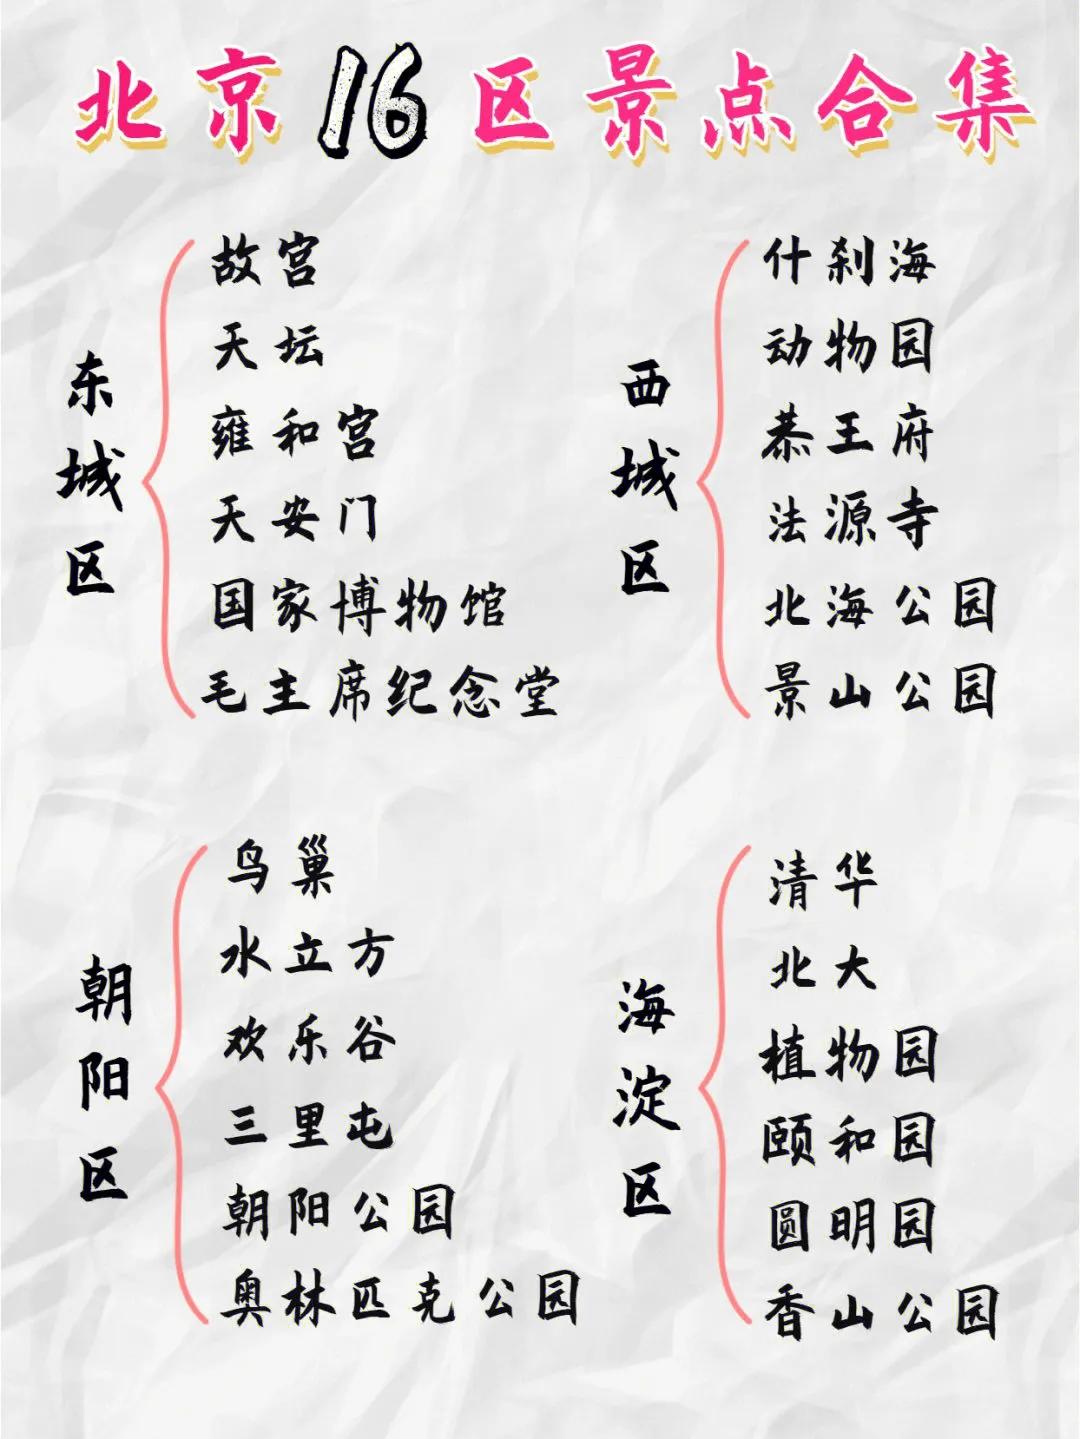 北京16区景点合集
东城区
故宫
天坛
雍和宫
天安门
国家博物馆
毛主席纪念堂
西城区
什刹海
动物园
恭王府
法源寺
北海公园
景山公园
朝阳区
鸟巢
水立方
欢乐谷
三里屯
朝阳公园
奥林匹克公园
海淀区
清华
北大
植物园
颐和园
圆明园
香山公园